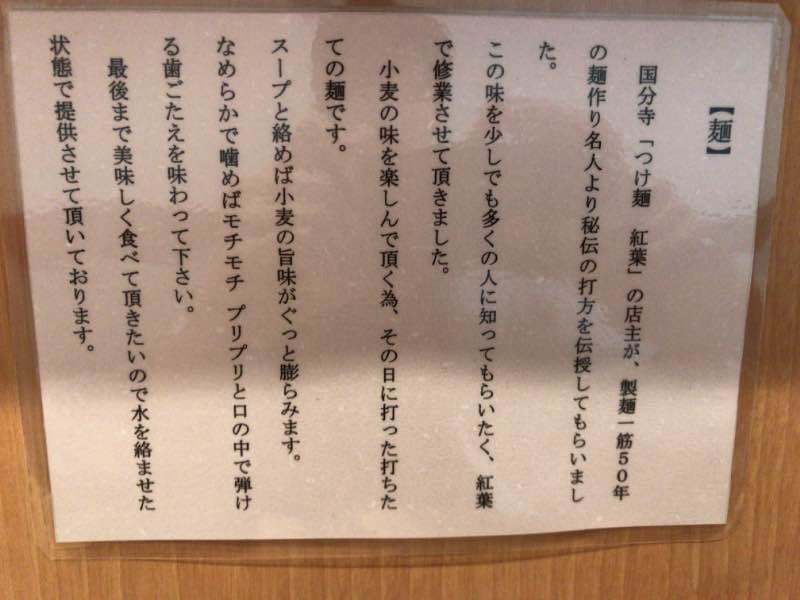 【麺】
国分寺「つけ麺　紅葉」の店主が、製麺一筋50年
の麺作り名人より秘伝の打方を伝授してもらいまし
た。
この味を少しでも多くの人に知ってもらいたく、紅葉
で修業させて頂きました。
小麦の味を楽しんで頂く為、その日に打った打ちた
ての麺です。
スープと絡めば小麦の旨味がぐっと膨らみます。
なめらかで噛めばモチモチ プリプリと口の中で弾け
る歯ごたえを味わって下さい。
最後まで美味しく食べて頂きたいので水を絡ませた
状態で提供させて頂いております。